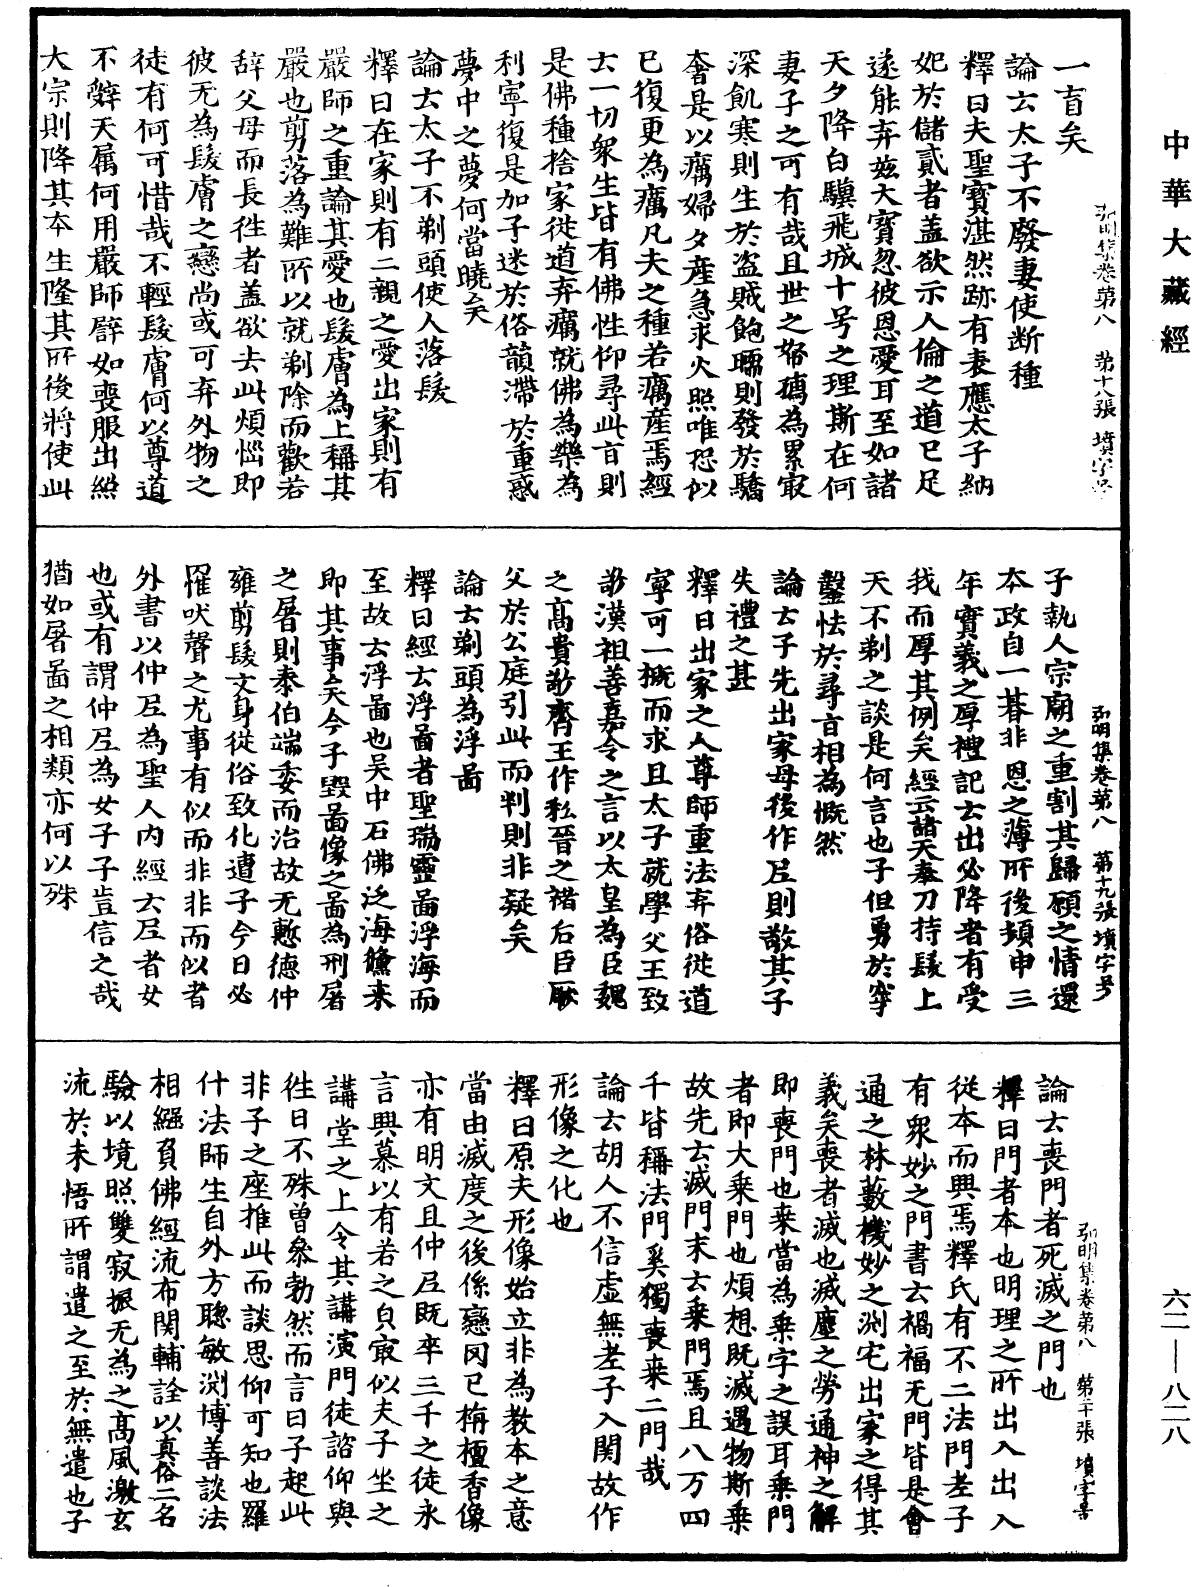 中華大藏經
弘明集卷第八 第十八張 墳字号
一言矣
論云太子不廢妻使断種
釋曰夫聖寶湛然跡有表應太子納
妃於儲貳者盖欲示人倫之道已足
遂能弃兹大寶忽彼恩愛耳至如諸
天夕降白驥飛城十号之理斯在何
妻子之可有哉且世之孥孺為累㝡
深飢寒則生於盗賊飽暖則發於驕
奢是以癘婦夕産急求火照唯恐似
已復更為癘凡夫之種若癘産焉經
云一切衆生皆有佛性仰尋此旨則
是佛種捨家從道弃癘就佛為樂為
利寧復是加子迷於俗韻滯於重惑
夢中之夢何當曉矣
論云太子不剃頭使人落髮
釋曰在家則有二親之愛出家則有
嚴師之重論其愛也髮膚為上稱其
嚴也剪落為難所以就剃除而歡若
辞父母而長徃者盖欲去此煩惱即
彼无為髮膚之戀尚或可弃外物之
徒有何可惜哉不輕髮膚何以尊道
不辭天属何用嚴師辟如喪服出紹
大宗則降其本生隆其所後將使此
弘明集卷第八 第十九張 墳字号
子執人宗廟之重割其歸顧之情還
本政自一朞非恩之薄所後頓申三
年實義之厚禮記云出必降者有受
我而厚其例矣經云諸天奉刀持髮上
天不剃之談是何言也子但勇於穿
鑿怯於尋旨相為慨然
論云子先出家母後作𡰱則敬其子
失禮之甚
釋曰出家之人尊師重法弃俗從道
寧可一概而求且太子就學父王致
敬漢祖善嘉令之言以太皇為臣魏
之高貴敬齊王作私晉之褚后臣厭
父於公庭引此而判則非疑矣
論云剃頭為浮啚
釋曰經云浮啚者聖瑞靈啚浮海而
至故云浮啚也吳中石佛泛海儵来
即其事矣今子毀啚像之啚為刑屠
之屠則泰伯端委而治故无慙德仲
雍剪髮文身從俗致化遭子今日必
罹吠聲之尤事有似而非非而似者
外書以仲𡰱為聖人内經云𡰱者女
也或有謂仲𡰱為女子子豈信之哉
猶如屠啚之相類亦何以殊
弘明集卷第八 第二十張 墳字号
論云喪門者死滅之門也
釋曰門者本也明理之所出入出入
從本而興焉釋氏有不二法門老子
有衆妙之門書云禍福无門皆是會
通之林藪機妙之渊宅出家之得其
義矣喪者滅也滅塵之勞通神之解
即喪門也桒當為乗字之誤耳乗門
者即大乗門也煩想既滅遇物斯乗
故先云滅門末云乗門焉且八万四
千皆稱法門奚獨喪桒二門哉
論云胡人不信虚無老子入関故作
形像之化也
釋曰原夫形像始立非為教本之意
當由滅度之後係戀罔已栴檀香像
亦有明文且仲𡰱既卒三千之徒永
言興慕以有若之皃㝡似夫子坐之
講堂之上令其講演門徒諮仰與
徃日不殊曾叅勃然而言曰子起此
非子之座推此而談思仰可知也羅
什法師生自外方聦敏渊博善談法
相繦負佛經流布関輔詮以真俗二名
驗以境照雙寂振无為之高風激玄
流於未悟所謂遣之至於無遣也子
六二—八二八